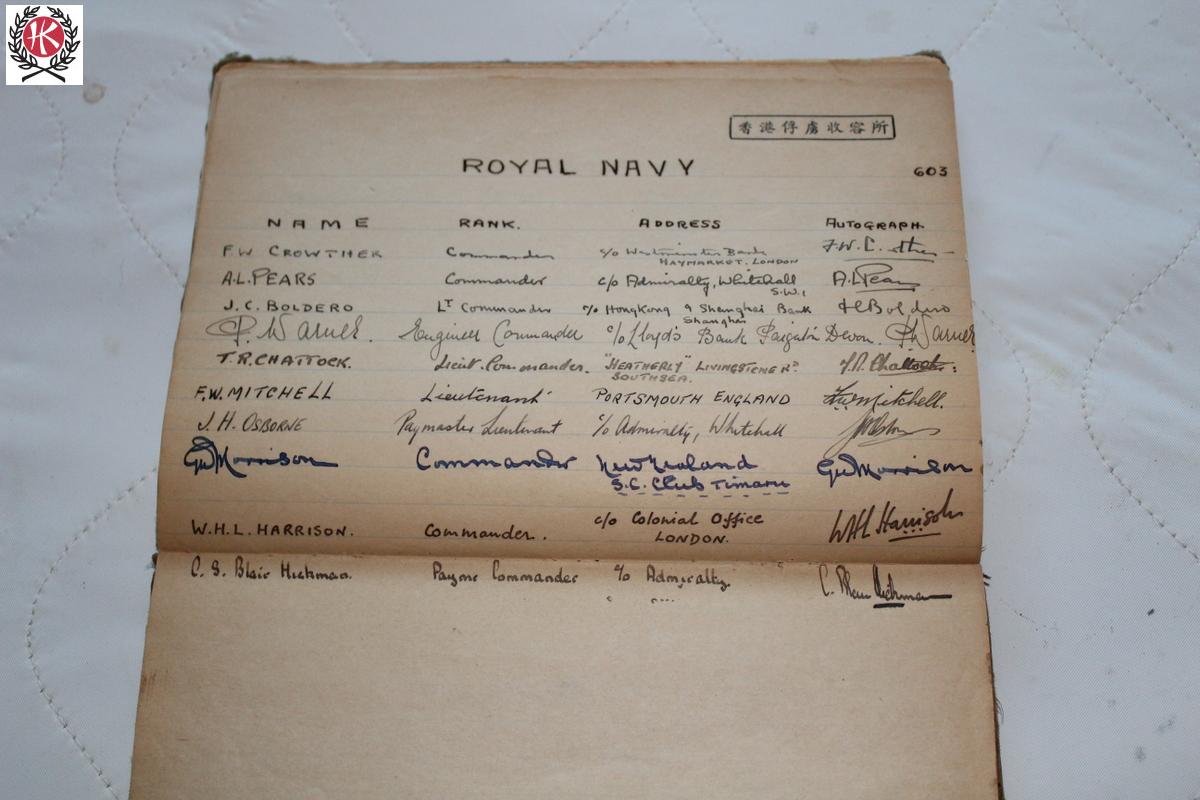 HK
香港俘虜收容所
ROYAL NAVY
603
NAME RANK. ADDRESS AUTOGRAPH.
F.W CROWTHER Commander c/o Westminster Bank F.W.
HAYMARKET. LONDON
A.L. PEARS Commander c/o Admiralty, Whitehall A.L. Pears
S.W.1
J.C. BOLDERO LT Commander c/o HongKong & Shanghai Bank JCBoldero
Shanghai
P. Warner. Engineer Commander c/o Lloyd's Bank Paignton Devon. P. Warner.
T.R. CHATTOCK. Lieut. Commander. "HEATHERLY" LIVINGSTONE RD T.R. Chattock:
SOUTHSEA.
F.W. MITCHELL Lieutenant PORTSMOUTH ENGLAND F.W. Mitchell.
J. H. OSBORNE Paymaster Lieutenant c/o Admiralty, Whitehall
Morrison Commander New Zealand Morrison
S.C. Club Timaru
W.H.L. HARRISON. Commander. c/o Colonial Office WHL Harrison
LONDON.
C. S. Blair Hickman. Paymr Commander c/o Admiralty. C. Blair Hickman